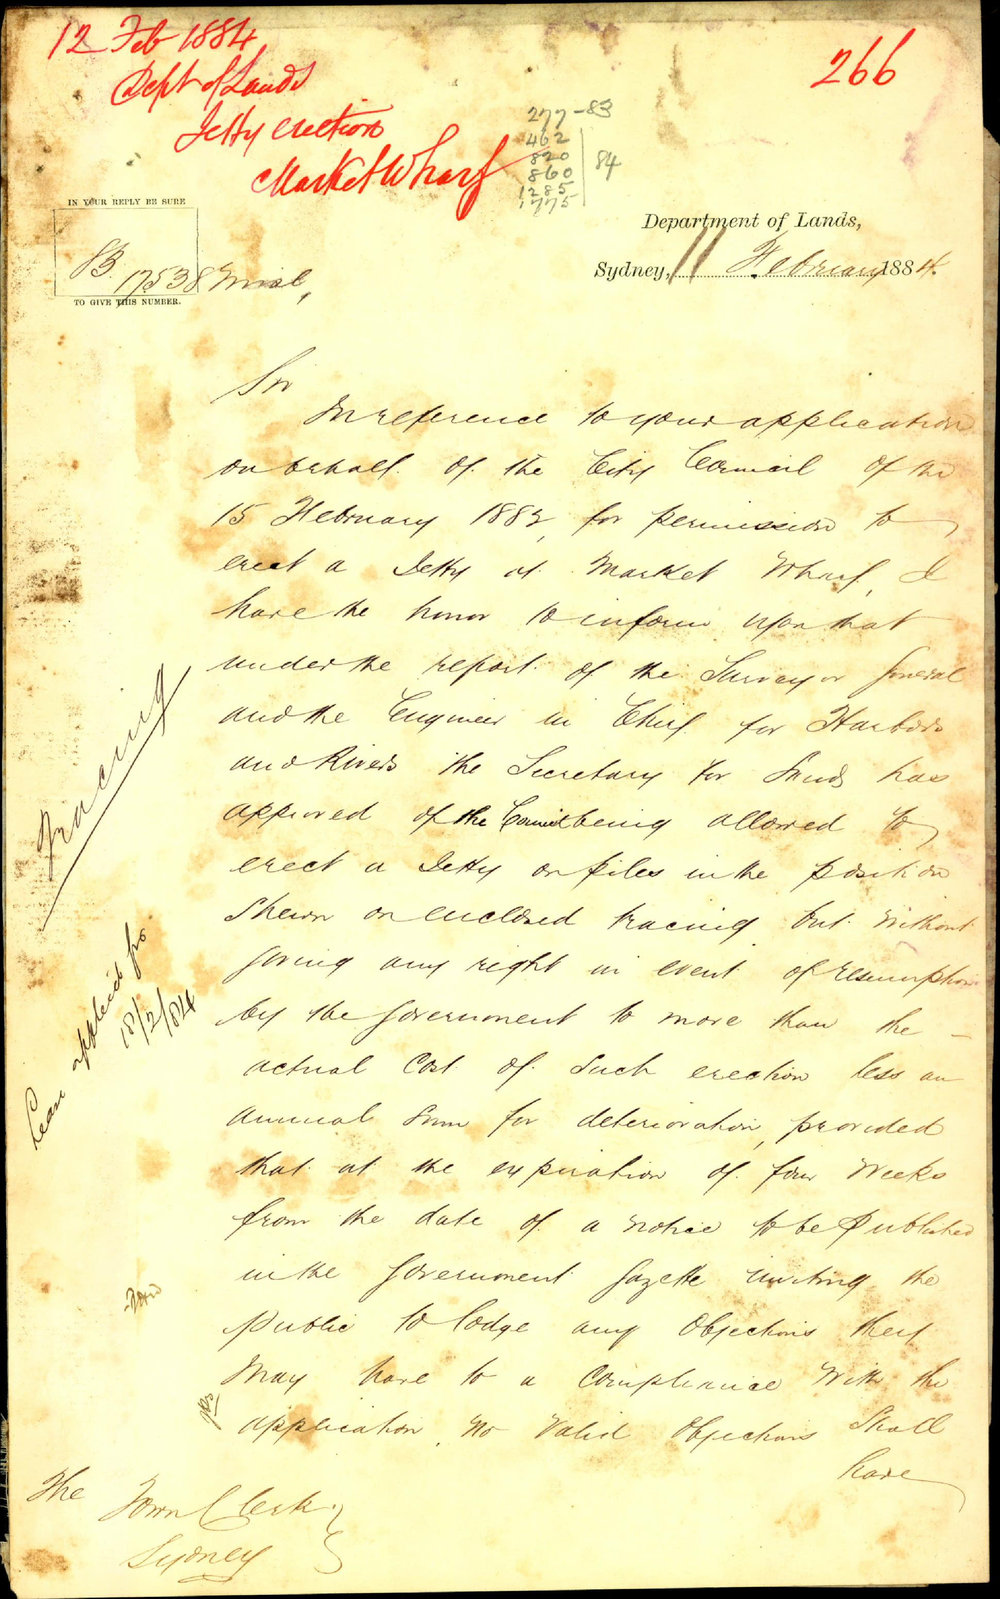 12 Feb 1884
Dept of Lands
Jetty erection
Market Wharf
266
277-83
462
820
860
1285
1775
84
IN YOUR REPLY BE SURE
83. 17538 Misl,
TO GIVE THIS NUMBER.
Department of Lands,
Sydney, 11 February 1884.
Sir
In reference to your application
on behalf of the City Council of the
15 February 1882, for permission to
erect a Jetty at Market Wharf, I
have the honor to inform you that
under the report of the Surveyor General
and the Engineer in Chief for Harbors
and Rivers the Secretary for Lands has
approved of the Council being allowed to
erect a Jetty on piles in the position
shewn on enclosed tracing but without
giving any right in event of resumption
by the Government to more than the
actual cost of such erection less an
annual sum for deterioration, provided
that at the expiration of four weeks
from the date of a notice to be published
in the Government Gazette inviting the
public to lodge any objections they
may have to a compliance with the
application, no valid objections shall
have
Tracing
Loan applied for
18/2/84
The Town Clerk
Sydney